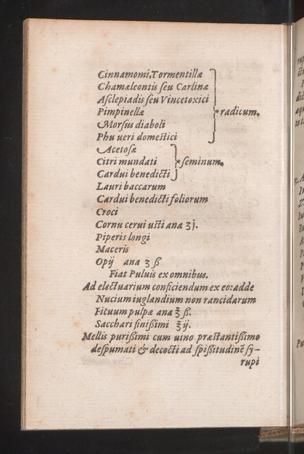 Cinnamomi, Tormentillæ
Chamæleontis seu Carlinæ
Asclepiadis seu Vincetoxici
Pimpinellæ
radicum.
Morsus diaboli
Phu ueri domestici
Acetosæ
Citri mundati
seminum.
Cardui benedicti
Lauri baccarum
Cardui benedicti foliorum
Croci
Cornu cerui usti ana ʒj.
Piperis longi
Maceris
Opij ana ʒ ß.
Fiat Puluis ex omnibus.
Ad electuarium conficiendum ex eo: adde
Nucium iuglandium non rancidarum
Fituum pulpæ ana ℥ ß.
Sacchari finißimi ℥ij.
Mellis purißimi cum uino præstantißimo
despumati & decocti ad spißitudinē sy-
rupi